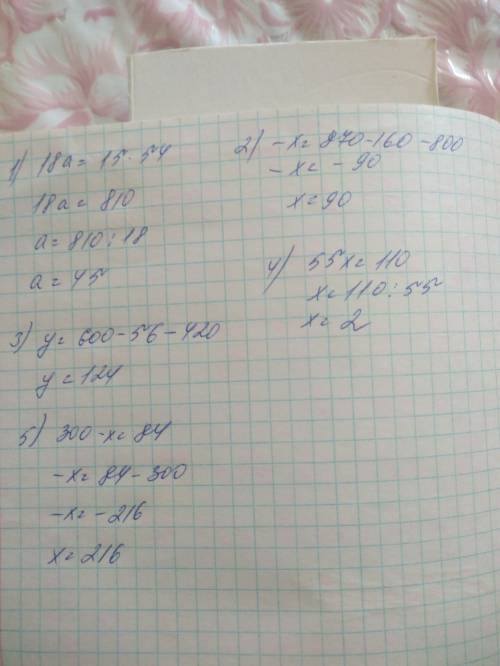 1) 18a = 15 · 54
18a = 810
a = 810 : 18
a = 45
2) -x = 870-160-800
-x = -90
x = 90
3) y = 600-56-420
y = 124
4) 55x = 110
x = 110 : 55
x = 2
5) 300-x = 84
-x = 84-300
-x = -216
x = 216